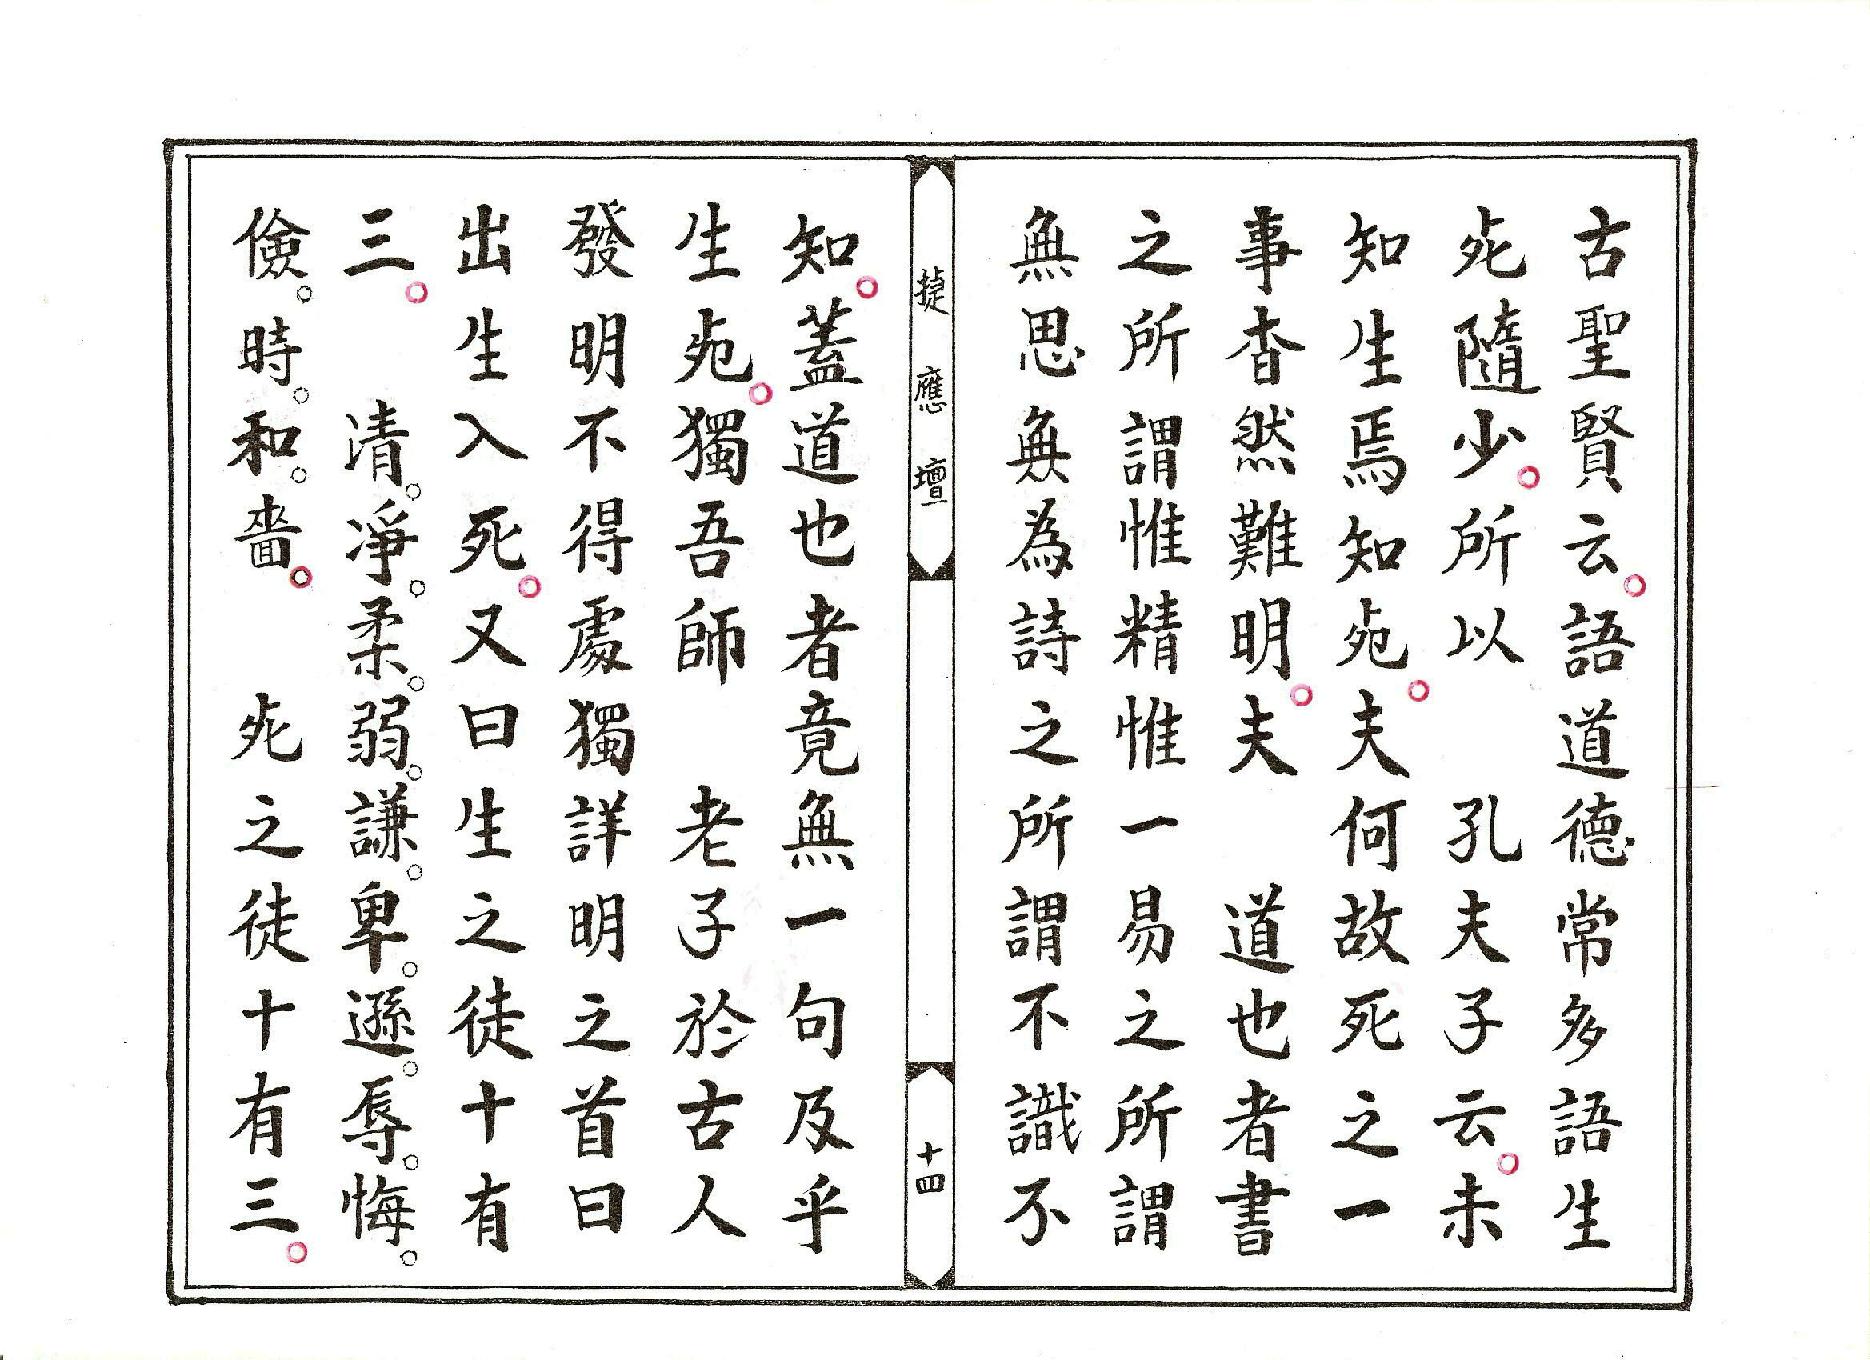 古聖賢云。語道德常多語生
死隨少。所以　孔夫子云。未
知生焉知死。夫何故死之一
事杳然難明。夫　道也者書
之所謂惟精惟一易之所謂
無思無為詩之所謂不識不
捷應壇
十四
知。蓋道也者竟無一句及乎
生死。獨吾師　老子於古人
發明不得處獨詳明之首曰
出生入死。又曰生之徒十有
三。　清。凈。柔。弱。謙。卑。遜。辱。悔。
儉。時。和。嗇。　死之徒十有三。